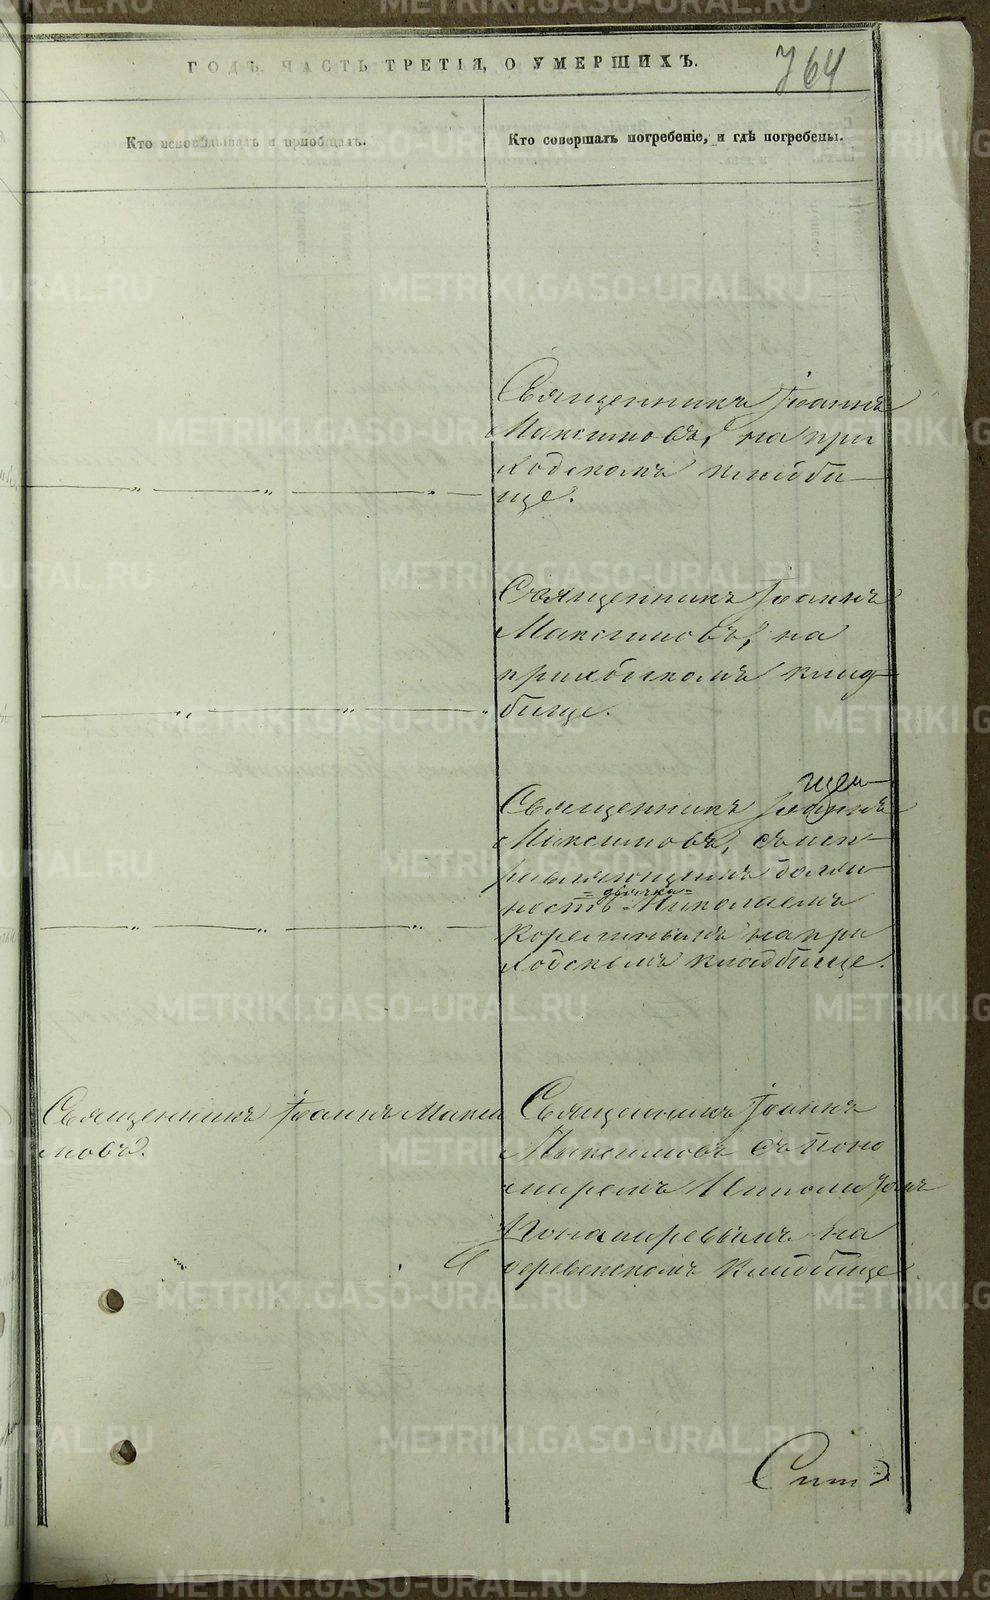 ГОДЪ, ЧАСТЬ ТРЕТІЯ, О УМЕРШИХЪ.
764
Кто исповѣдывалъ и приобщалъ.
Кто совершалъ погребеніе, и гдѣ погребены.
Священникъ Іоаннъ
Максимовъ, на при
ходскомъ кладби-
ще.
Священникъ Іоаннъ
Максимовъ, на
приходскомъ клад-
бище.
Священникъ Іоаннъ
Максимовъ, съ исп-
равляющимъ долж-
=дьячка=
ность Николаемъ
на при
ходскомъ кладбище.
Священникъ Іоаннъ Макси
мовъ.
Священникъ Іоаннъ
Максимовъ съ Поно
маремъ Николаемъ
Пономаревымъ на
деревенскомъ кладбище
METRIKI.GASO-URAL.RU